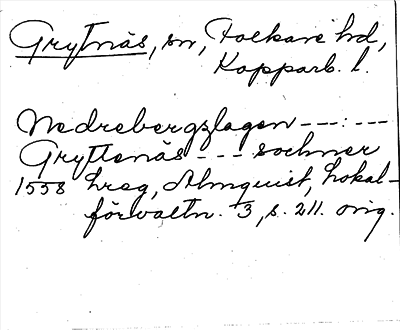 Grytnäs, sn, Folkare hd,
Kopparb. l.
Nedrebergzlagen ---:---
Gryttenäs --- sochner
1558 Lreg, Almquist, Lokal-
förvaltn. 3, s. 211. orig.